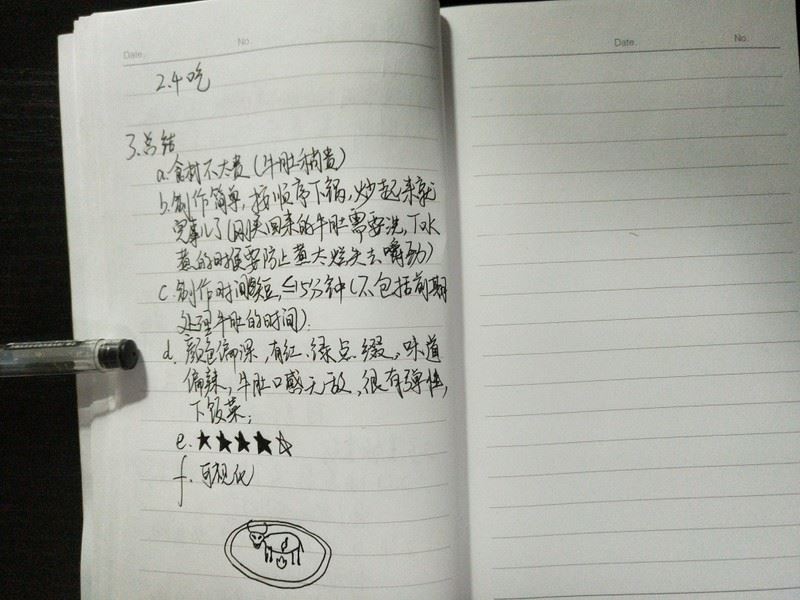 Date.
No.
2.4 吃
3.总结
a.食材不太贵(牛肚稍贵)
b.制作简单,按顺序下锅,炒起来就
完事儿了(刚买回来的牛肚需要洗,下水
煮的时候要防止煮太烂失去嚼劲)
c.制作时间短,≤15分钟(不包括前期
处理牛肚的时间);
d.颜色偏深,有红、绿点缀,味道
偏辣,牛肚口感无敌,很有弹性,
下饭菜;
e.★★★★☆
f.可视化
Date.
No.